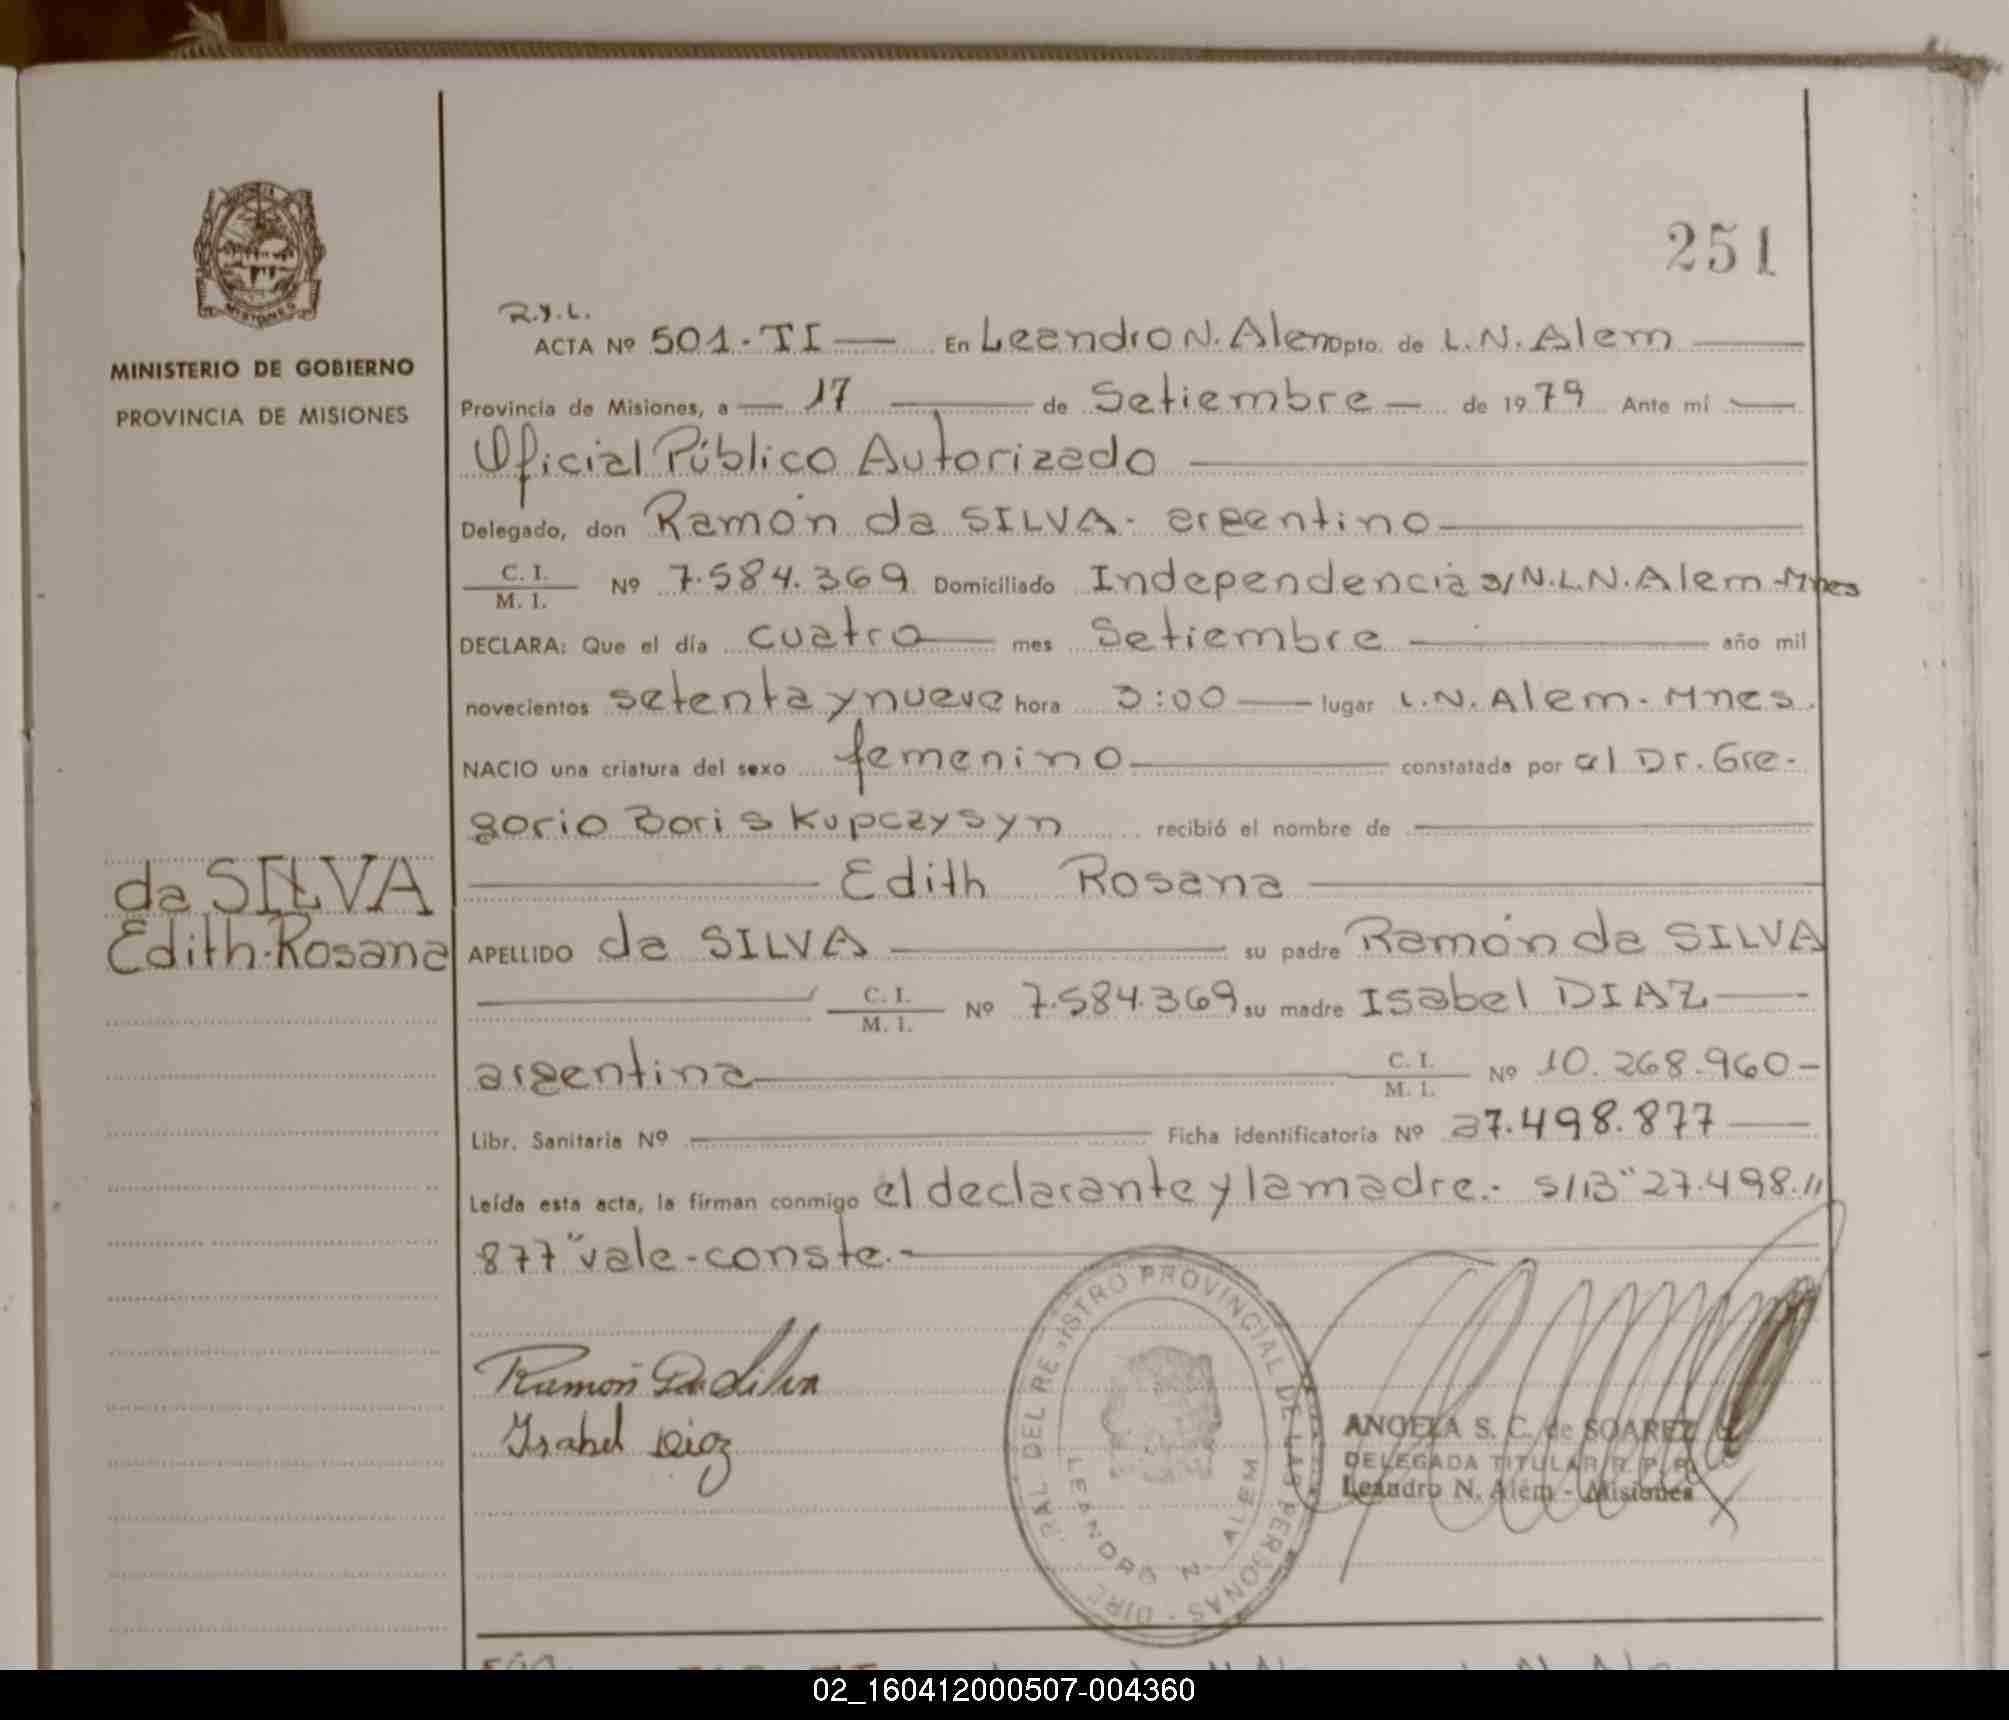 251
MISIONES
MINISTERIO DE GOBIERNO
PROVINCIA DE MISIONES
R.y.L.
ACTA Nº 501-TI — En Leandro N. Alem Dpto. de L.N. Alem
Provincia de Misiones, a — 17 — de Setiembre — de 1979 Ante mí —
Oficial Público Autorizado
Delegado, don Ramón da SILVA - argentino
C. I. / M. I. Nº 7.584.369 Domiciliado Independencia s/N. L.N. Alem - Mnes
DECLARA: Que el día cuatro — mes Setiembre — año mil
novecientos setenta y nueve hora 3:00 — lugar L.N. Alem - Mnes.
NACIO una criatura del sexo femenino — constatada por el Dr. Gre-
gorio Boris Kupczysyn recibió el nombre de —
da SILVA
Edith Rosana
Edith Rosana
APELLIDO da SILVA — su padre Ramón da SILVA
C. I. / M. I. Nº 7.584.369 su madre Isabel DIAZ —
argentina — C. I. / M. I. Nº 10.268.960 -
Libr. Sanitaria Nº — Ficha identificatoria Nº 27.498.877 —
Leída esta acta, la firman conmigo el declarante y la madre.- S/B "27.498.//
877" vale-conste.-
Ramón Da Silva
Isabel Diaz
RAL DEL REGISTRO PROVINCIAL DE LAS PERSONAS - DIRE
LEANDRO N. ALEM
ANGELA S. C. de SOAREZ
DELEGADA TITULAR R. P. P.
Leandro N. Alem - Misiones
02_160412000507-004360